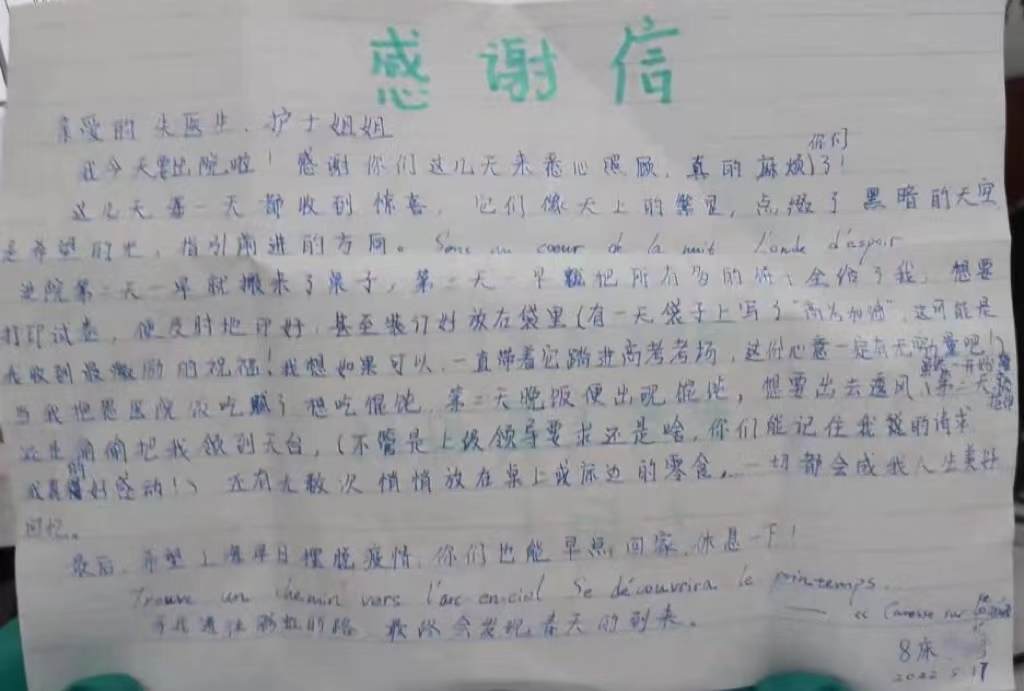 感谢信
亲爱的朱医生、护士姐姐
我今天要出院啦！感谢你们这几天来悉心照顾，真的麻烦你们了！
这几天每一天都收到惊喜，它们像天上的繁星，点缀了黑暗的天空
是希望的光，指引前进的方向。Sens au coeur de la nuit L'onde d'espoir
进院第二天一早就搬来了桌子，第三天一早就把所有多的 全给了我，想要
打印试卷，便及时地印好，甚至装订好放在袋里（有一天袋子上写了“高考加油”，这可能是
我收到最激励的祝福！我想如果可以，一直带着它踏进高考考场，这份心意一定有无穷 量吧！）
当我抱怨医院饭吃腻了想吃馄饨，第二天晚饭便出现馄饨，想要出去透风，第二天
医生偷偷把我领到天台，（不管是上级领导要求还是啥，你们能记住我 的请求
我真的好感动！）还有无数次悄悄放在桌上或床边的零食，一切都会成我人生美好
回忆。
最后，希望上海早日摆脱疫情，你们也能早点回家，休息一下！
Trouve un chemin vers l'arc en ciel Se découvrira le printemps.
寻找通往彩虹的路 最终会发现春天的到来。
—— << Caresse sur l'océan
8床
2022.5.17